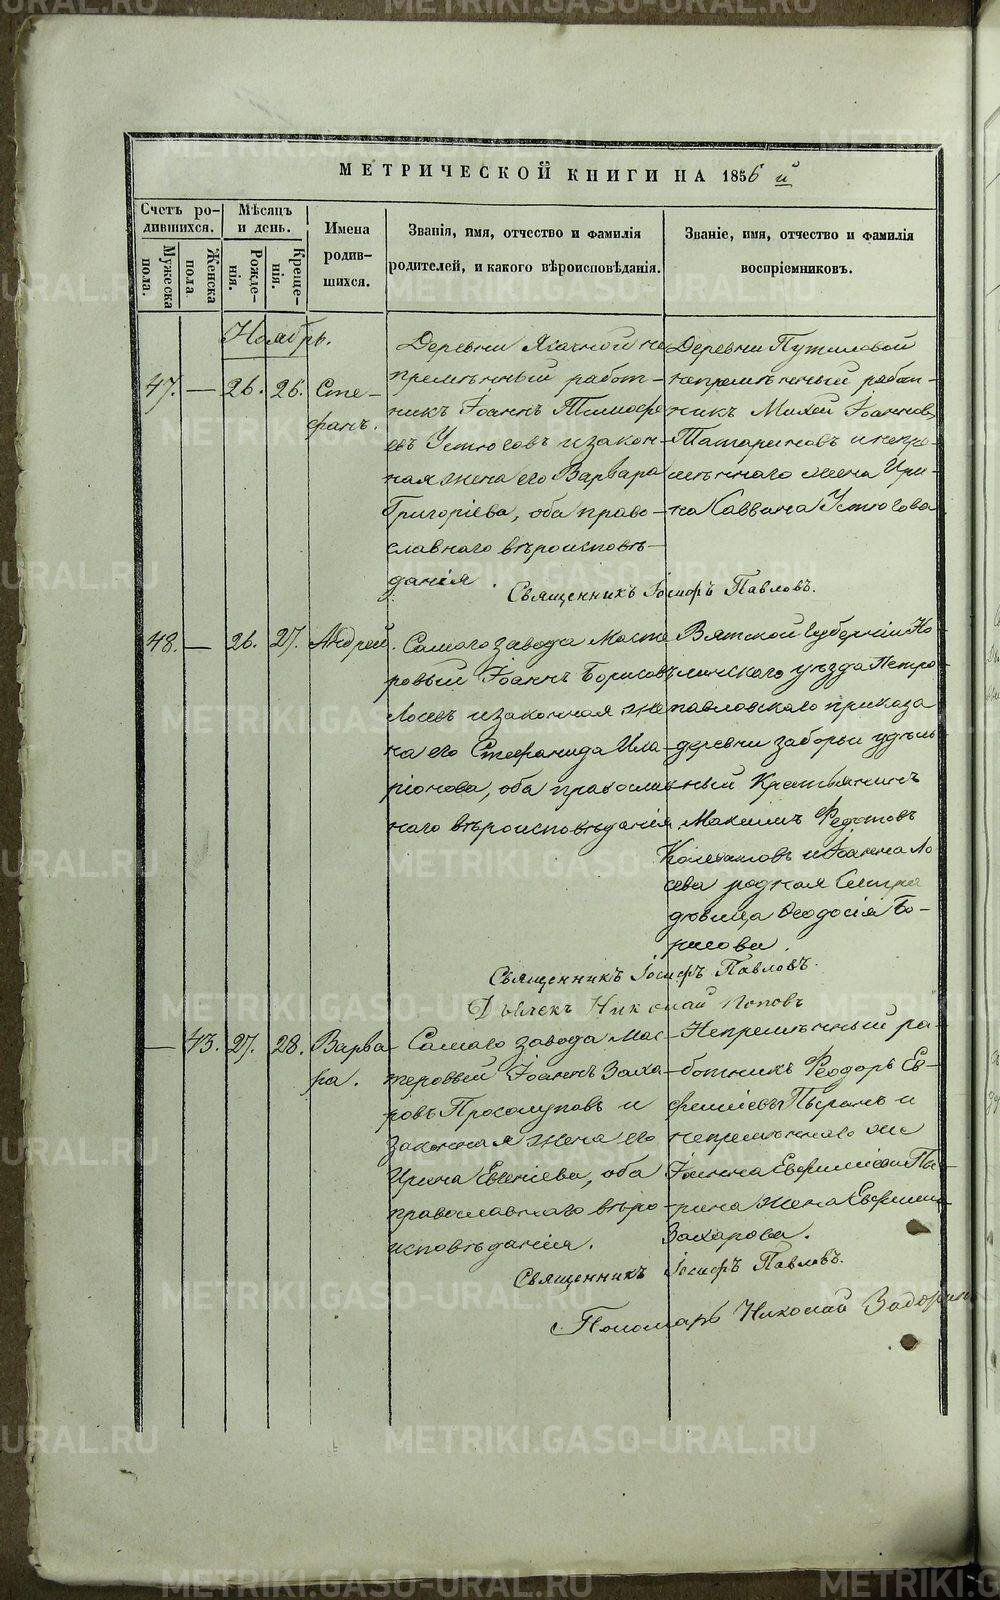 МЕТРИЧЕСКОЙ КНИГИ НА 1856 й
Счетъ родившихся.
Мѣсяцъ и день.
Имена родившихся.
Званія, имя, отчество и фамилія родителей, и какого вѣроисповѣданія.
Званіе, имя, отчество и фамилія воспріемниковъ.
Мужеска пола.
Женска пола
Рожденія.
Крещенія.
Ноябрь.
47. — 26. 26. Стефанъ.
Деревни
премѣнный работ-
никъ Іоаннъ Тимофе
евъ Устюговъ и закон-
ная жена его Варвара
Григоріева, оба право-
славнаго вѣроисповѣ-
данія.
Деревни Путиловой
непремѣнный работ-
никъ Михей Іоанновъ
Татариновъ и непре-
мѣннаго жена Ири-
на Саввина Устюгова
Священникъ Іосифъ Павловъ.
48. — 26. 27. Андрей.
Самаго завода Масте
ровый Іоаннъ Борисовъ
Лосевъ и законная же
на его Стефанида Ила-
ріонова, оба православ
наго вѣроисповѣданія.
Вятской Губерніи Но-
линскаго уѣзда Петро-
павловскаго приказа
деревни заборьи удѣль
ный Крестьянинъ
Максимъ Федотовъ
и Іоанна Ло
сева родная Сестра
дѣвица Ѳеодосія Бо-
рисова.
Священникъ Іосифъ Павловъ.
Дьячекъ Николай Поповъ
— 43. 27. 28. Варвара.
Самаго завода Мас-
теровый Іоаннъ Заха-
ровъ и
законная жена его
Ирина Евгеніева, оба
православнаго вѣро-
исповѣданія.
Непремѣнный ра-
ботникъ Феодоръ Ев-
фиміевъ Пыринъ и
непремѣннаго же
Іоанна Евфиміева Пы-
рина жена Евфимія
Захарова.
Священникъ Іосифъ Павловъ.
Пономарь Николай Задорин
METRIKI.GASO-URAL.RU